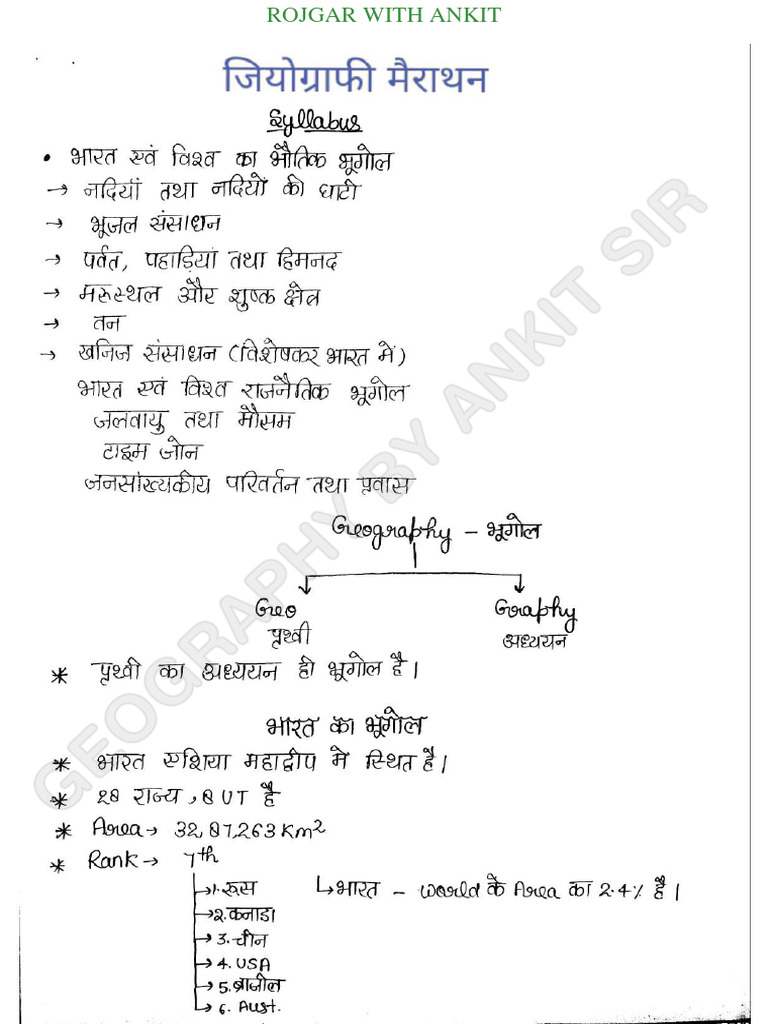 ROJGAR WITH ANKIT
जियोग्राफी मैराथन
Syllabus
• भारत एवं विश्व का भौतिक भूगोल
→ नदियां तथा नदियों की घाटी
→ भूजल संसाधन
→ पर्वत, पहाड़ियां तथा हिमनद
→ मरूस्थल और शुष्क क्षेत्र
→ तन
→ खनिज संसाधन (विशेषकर भारत में)
भारत एवं विश्व राजनैतिक भूगोल
जलवायु तथा मौसम
टाइम जोन
जनसांख्यकीय परिवर्तन तथा प्रवास
Geography – भूगोल
Geo Graphy
पृथ्वी अध्ययन
* पृथ्वी का अध्ययन ही भूगोल है।
भारत का भूगोल
* भारत एशिया महाद्वीप मे स्थित है।
* 28 राज्य, 8 UT है
* Area → 32,87,263 Km²
* Rank → 7th
→ 1. रूस ↳ भारत – World के Area का 2.4% है।
→ 2. कनाडा
→ 3. चीन
→ 4. USA
→ 5. ब्राजील
→ 6. Aust.
GEOGRAPHY BY ANKIT SIR